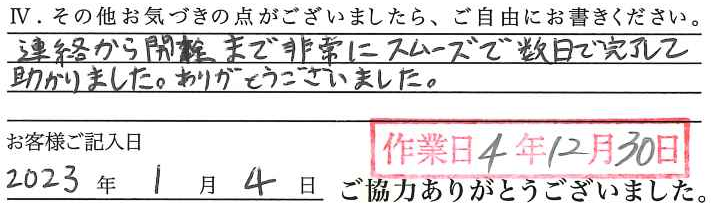 Ⅳ．その他お気づきの点がございましたら、ご自由にお書きください。
連絡から開栓まで非常にスムーズで数日で完了して
助かりました。ありがとうございました。
お客様ご記入日
作業日4年12月30日
2023年1月4日
ご協力ありがとうございました。